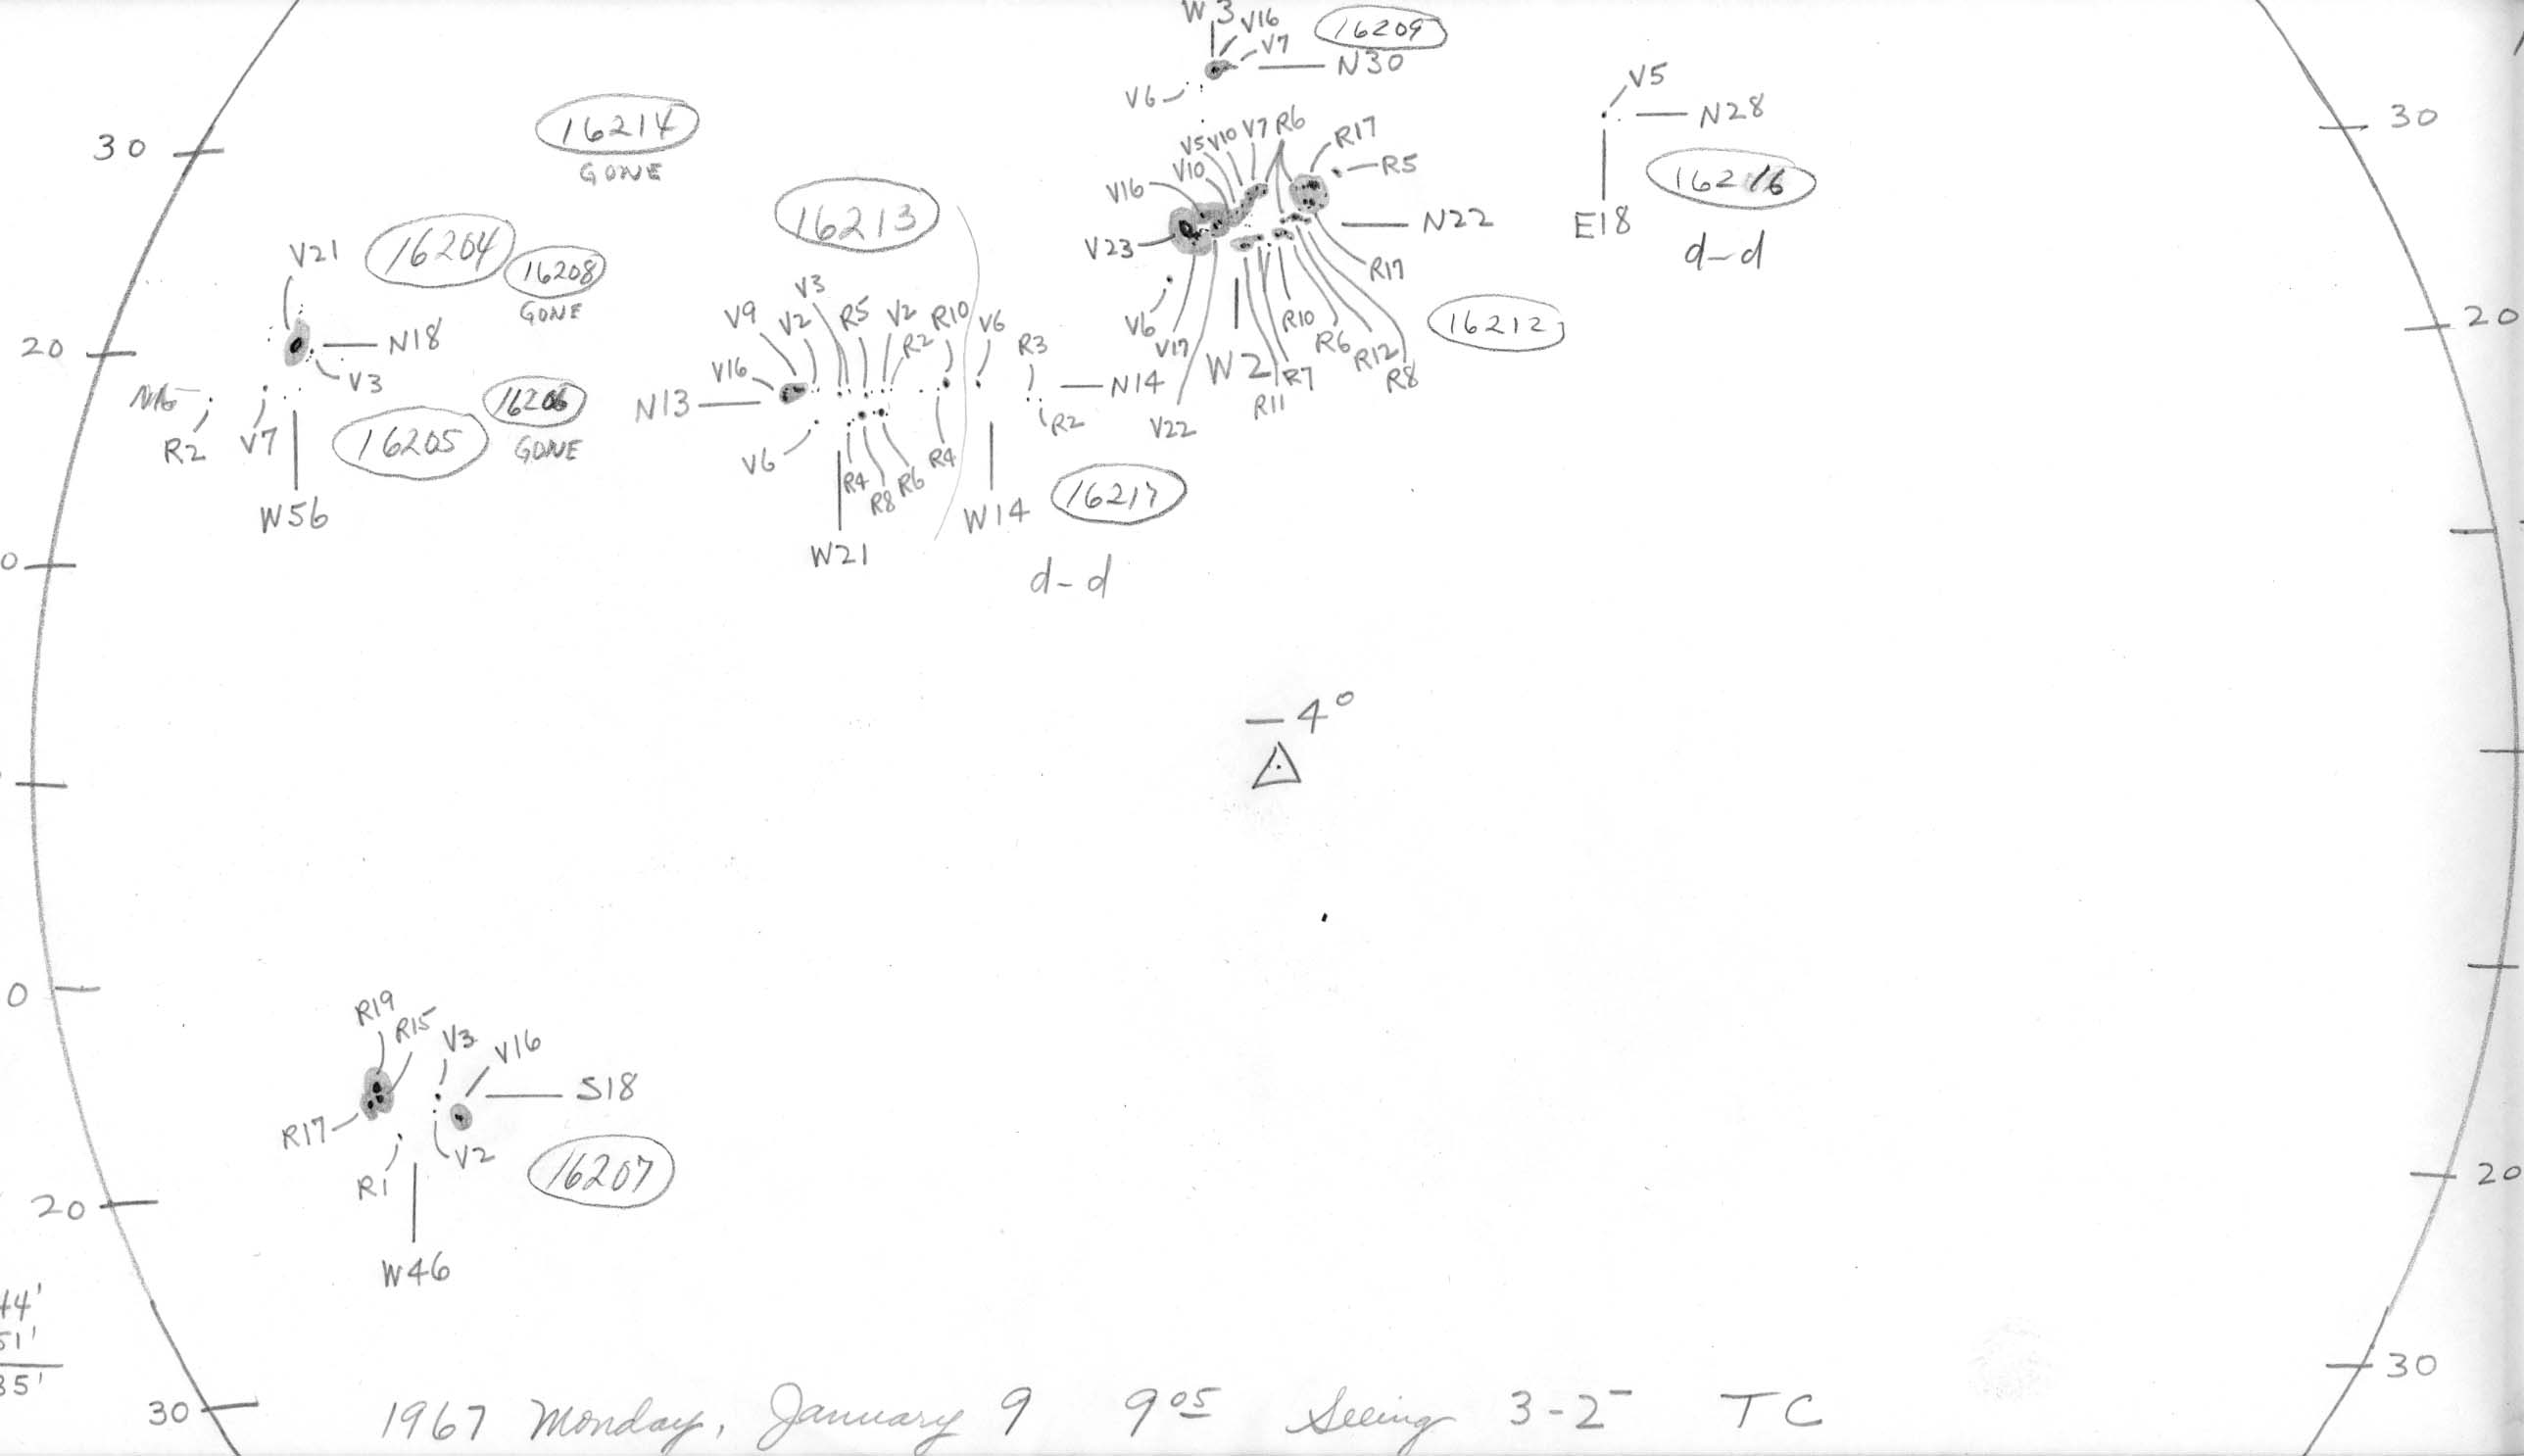 W 3
V16
16209
V7
N30
V6
V5
N28
30
30
16214
GONE
V5 V10 V7 R6
R17
V10
R5
V16
16216
16213
N22
E18
V23
d-d
V21
16204
16208
GONE
R17
V3
V9
V2
R5
V2
R10
V6
R2
R3
V6
R10
16212
20
N18
20
V17
R6
R12
V3
V16
N14
W2
R7
R8
16206
GONE
N13
R11
R2
V7
16205
R2
V22
V6
R4
R4
R8
R6
16217
W56
W14
W21
d-d
0
-4°
0
R19
R15
V3
V16
S18
R17
V2
R1
16207
20
20
W46
44'
51'
35'
30
30
1967 Monday, January 9 9 05 Seeing 3-2⁻ TC